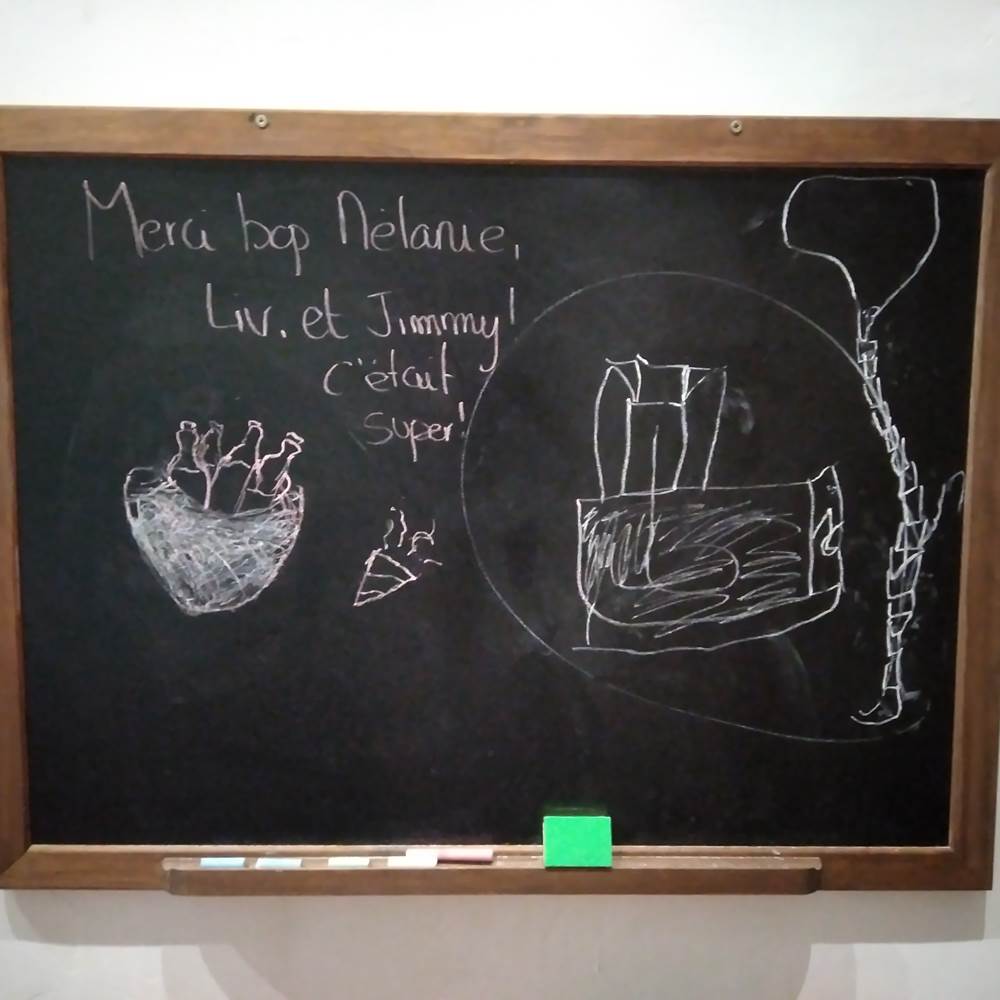 Merci bop Mélanie,
Liv. et Jimmy!
C'était
super!